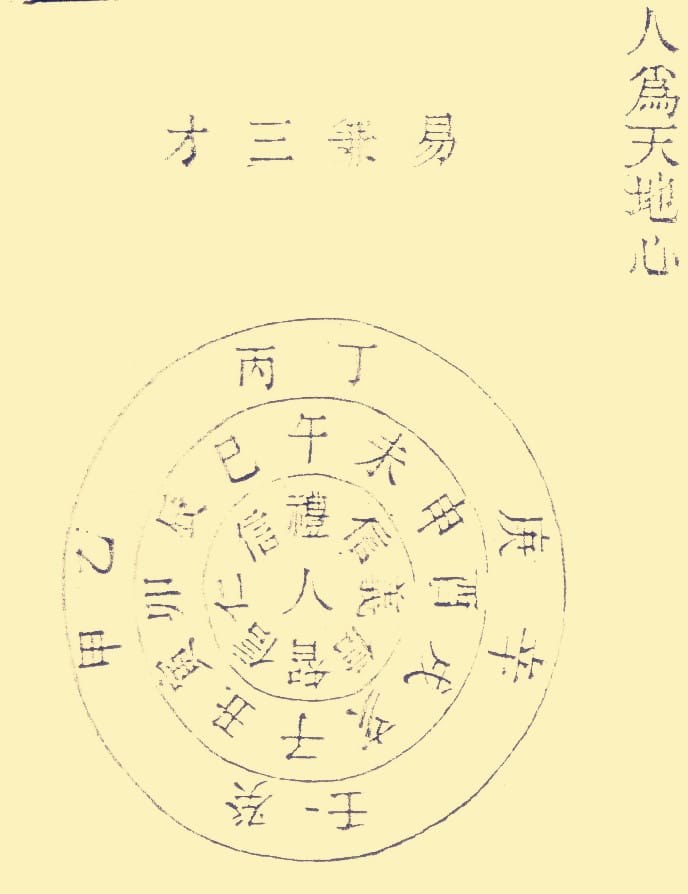 人為天地心
易兼三才
丙丁
庚辛
壬癸
甲乙
午未申酉戌亥子丑寅卯辰巳
禮信義信智信仁信
人